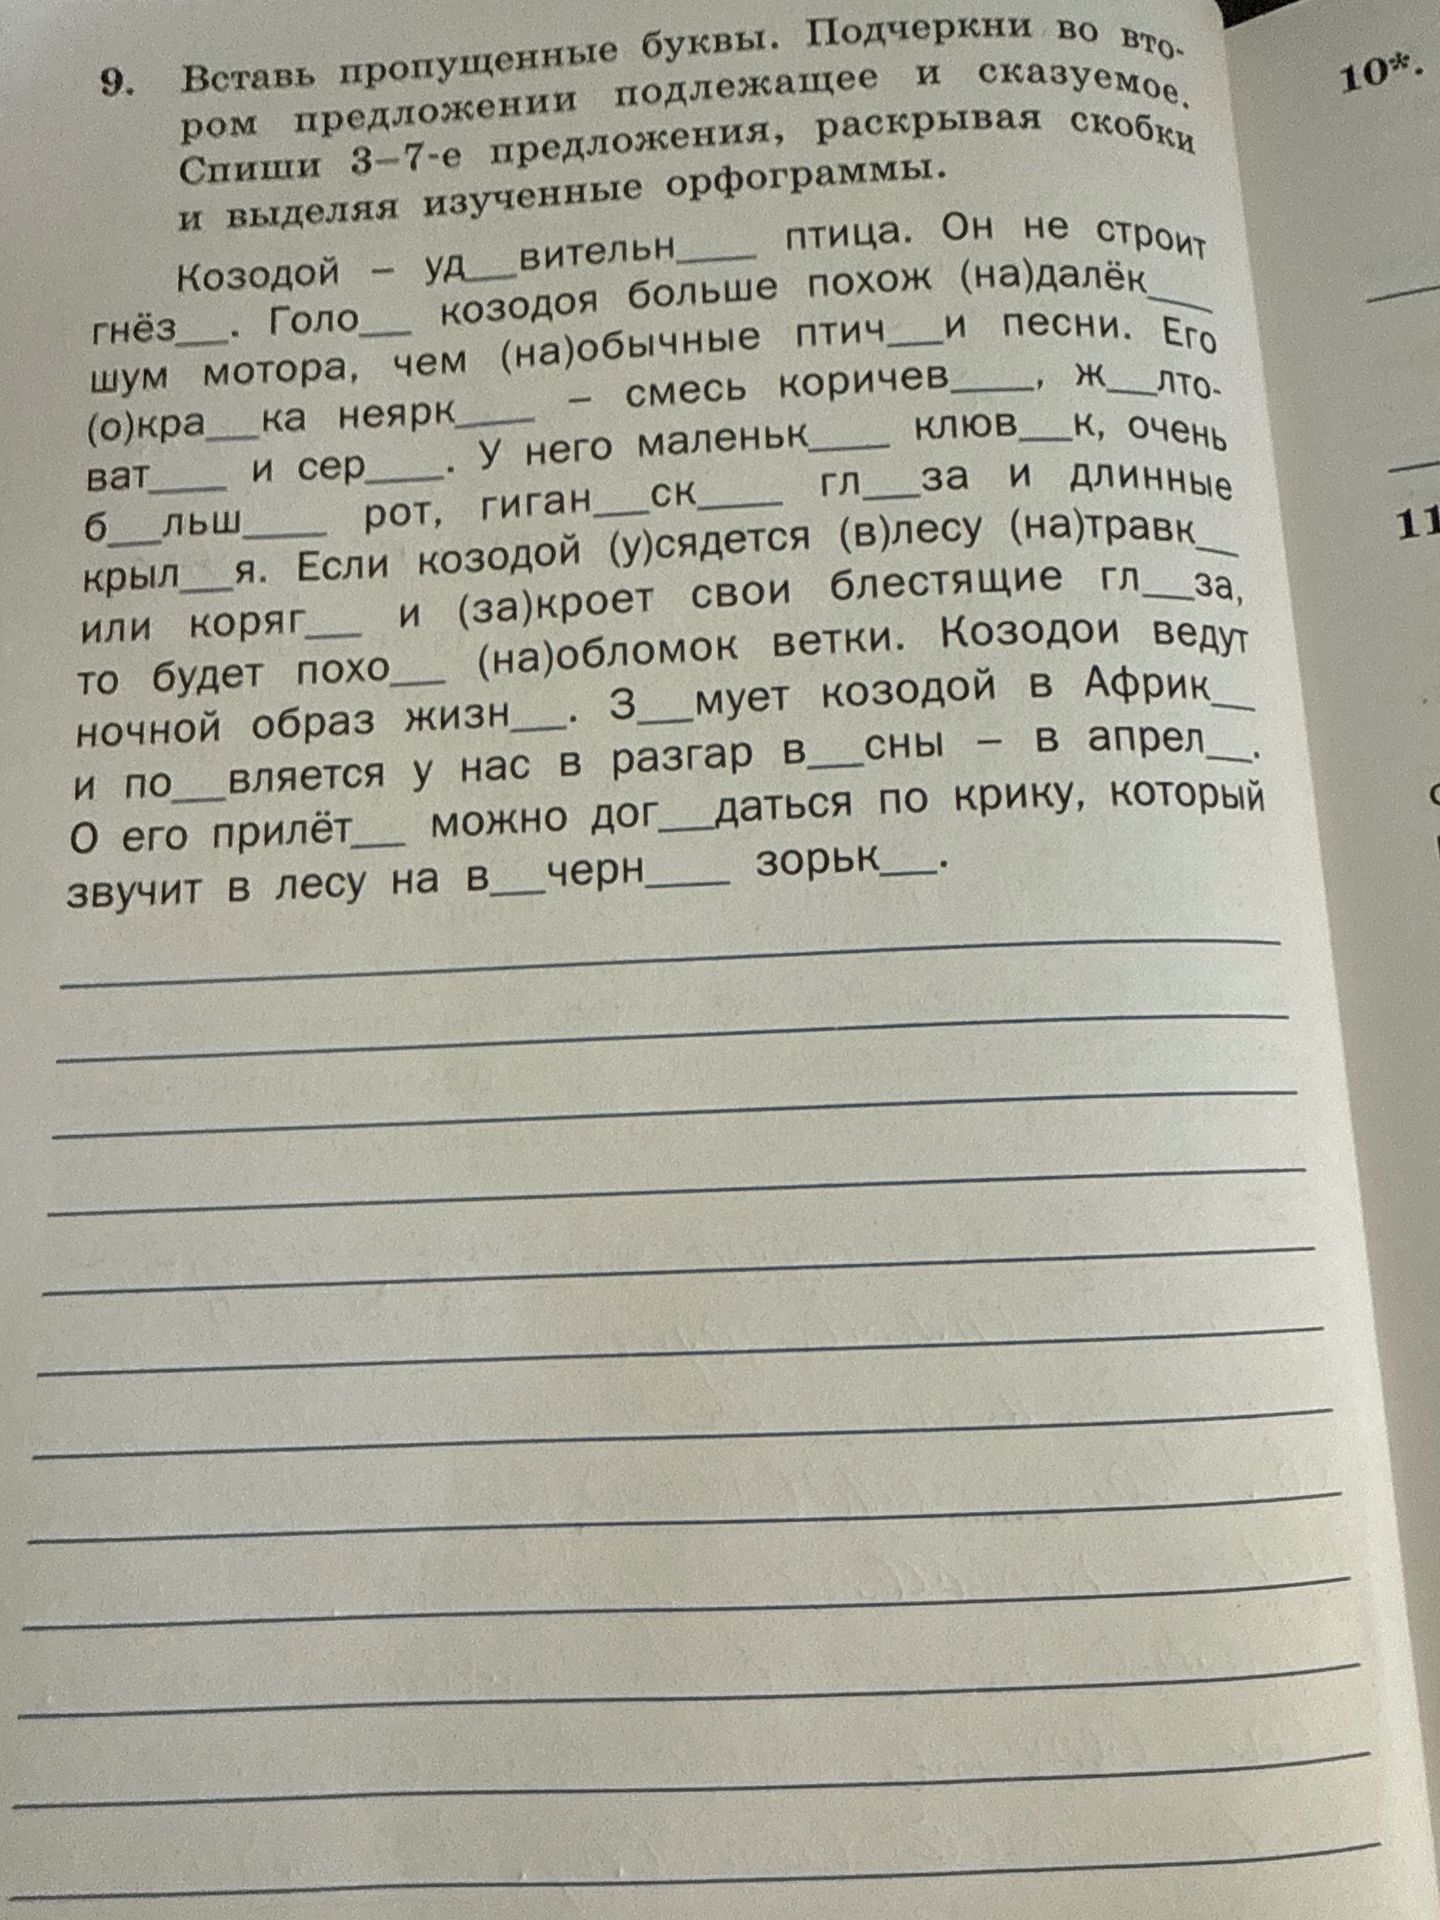 9. Вставь пропущенные буквы. Подчеркни во вто-
ром предложении подлежащее и сказуемое.
Спиши 3–7-е предложения, раскрывая скобки
и выделяя изученные орфограммы.
Козодой – уд__вительн____ птица. Он не строит
гнёз__. Голо__ козодоя больше похож (на)далёк___
шум мотора, чем (на)обычные птич__и песни. Его
(о)кра__ка неярк____ – смесь коричев____, ж__лто-
ват____ и сер____. У него маленьк____ клюв__к, очень
б__льш____ рот, гиган__ск____ гл__за и длинные
крыл__я. Если козодой (у)сядется (в)лесу (на)травк__
или коряг__ и (за)кроет свои блестящие гл__за,
то будет похо__ (на)обломок ветки. Козодои ведут
ночной образ жизн__. З__мует козодой в Африк__
и по__вляется у нас в разгар в__сны – в апрел__.
О его прилёт__ можно дог__даться по крику, который
звучит в лесу на в__черн____ зорьк__.
10*.
11